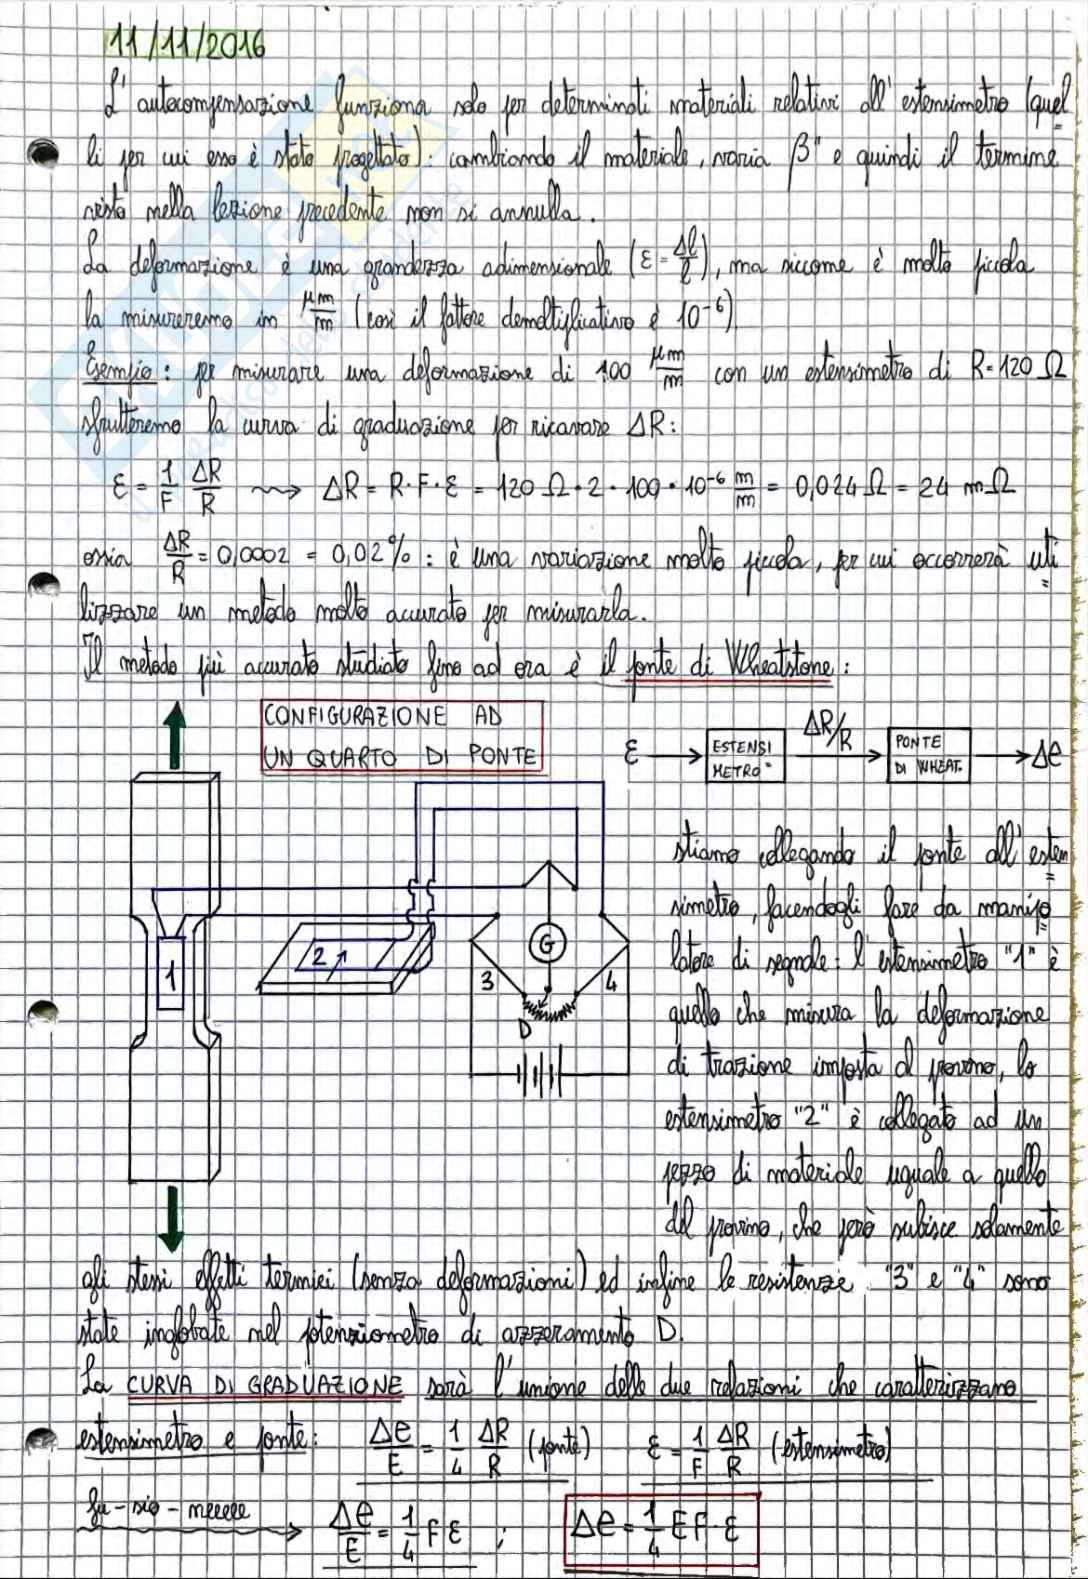 11/11/2016
L'autocompensazione funziona solo per determinati materiali relativi all'estensimetro (quel
li per cui esso è stato progettato): cambiando il materiale, varia β" e quindi il termine
visto nella lezione precedente non si annulla.
La deformazione è una grandezza adimensionale (ε = Δl/l), ma siccome è molto piccola
la misureremo in μm/m (così il fattore demoltiplicativo è 10⁻⁶)
Esempio: per misurare una deformazione di 100 μm/m con un estensimetro di R=120 Ω
sfrutteremo la curva di graduazione per ricavare ΔR:
ε = 1/F ΔR/R ⇝ ΔR = R·F·ε = 120 Ω · 2 · 100 · 10⁻⁶ m/m = 0,024 Ω = 24 mΩ
ossia ΔR/R = 0,0002 = 0,02% : è una variazione molto piccola, per cui occorrerà uti
lizzare un metodo molto accurato per misurarla.
Il metodo più accurato studiato fino ad ora è il ponte di Wheatstone:
CONFIGURAZIONE AD
UN QUARTO DI PONTE
ε → ESTENSI
METRO → ΔR/R → PONTE
DI WHEAT. → Δe
1
2
3
4
G
D
stiamo collegando il ponte all'esten
simetro, facendogli fare da manipo
latore di segnale: l'estensimetro "1" è
quello che misura la deformazione
di trazione imposta al provino, lo
estensimetro "2" è collegato ad un
pezzo di materiale uguale a quello
del provino, che però subisce solamente
gli stessi effetti termici (senza deformazioni) ed infine le resistenze "3" e "4" sono
state inglobate nel potenziometro di azzeramento D.
La CURVA DI GRADUAZIONE sarà l'unione delle due relazioni che caratterizzano
estensimetro e ponte: Δe/E = 1/4 ΔR/R (ponte) ε = 1/F ΔR/R (estensimetro)
fu-sio-neeeee → Δe/E = 1/4 F ε ; Δe = 1/4 E F · ε